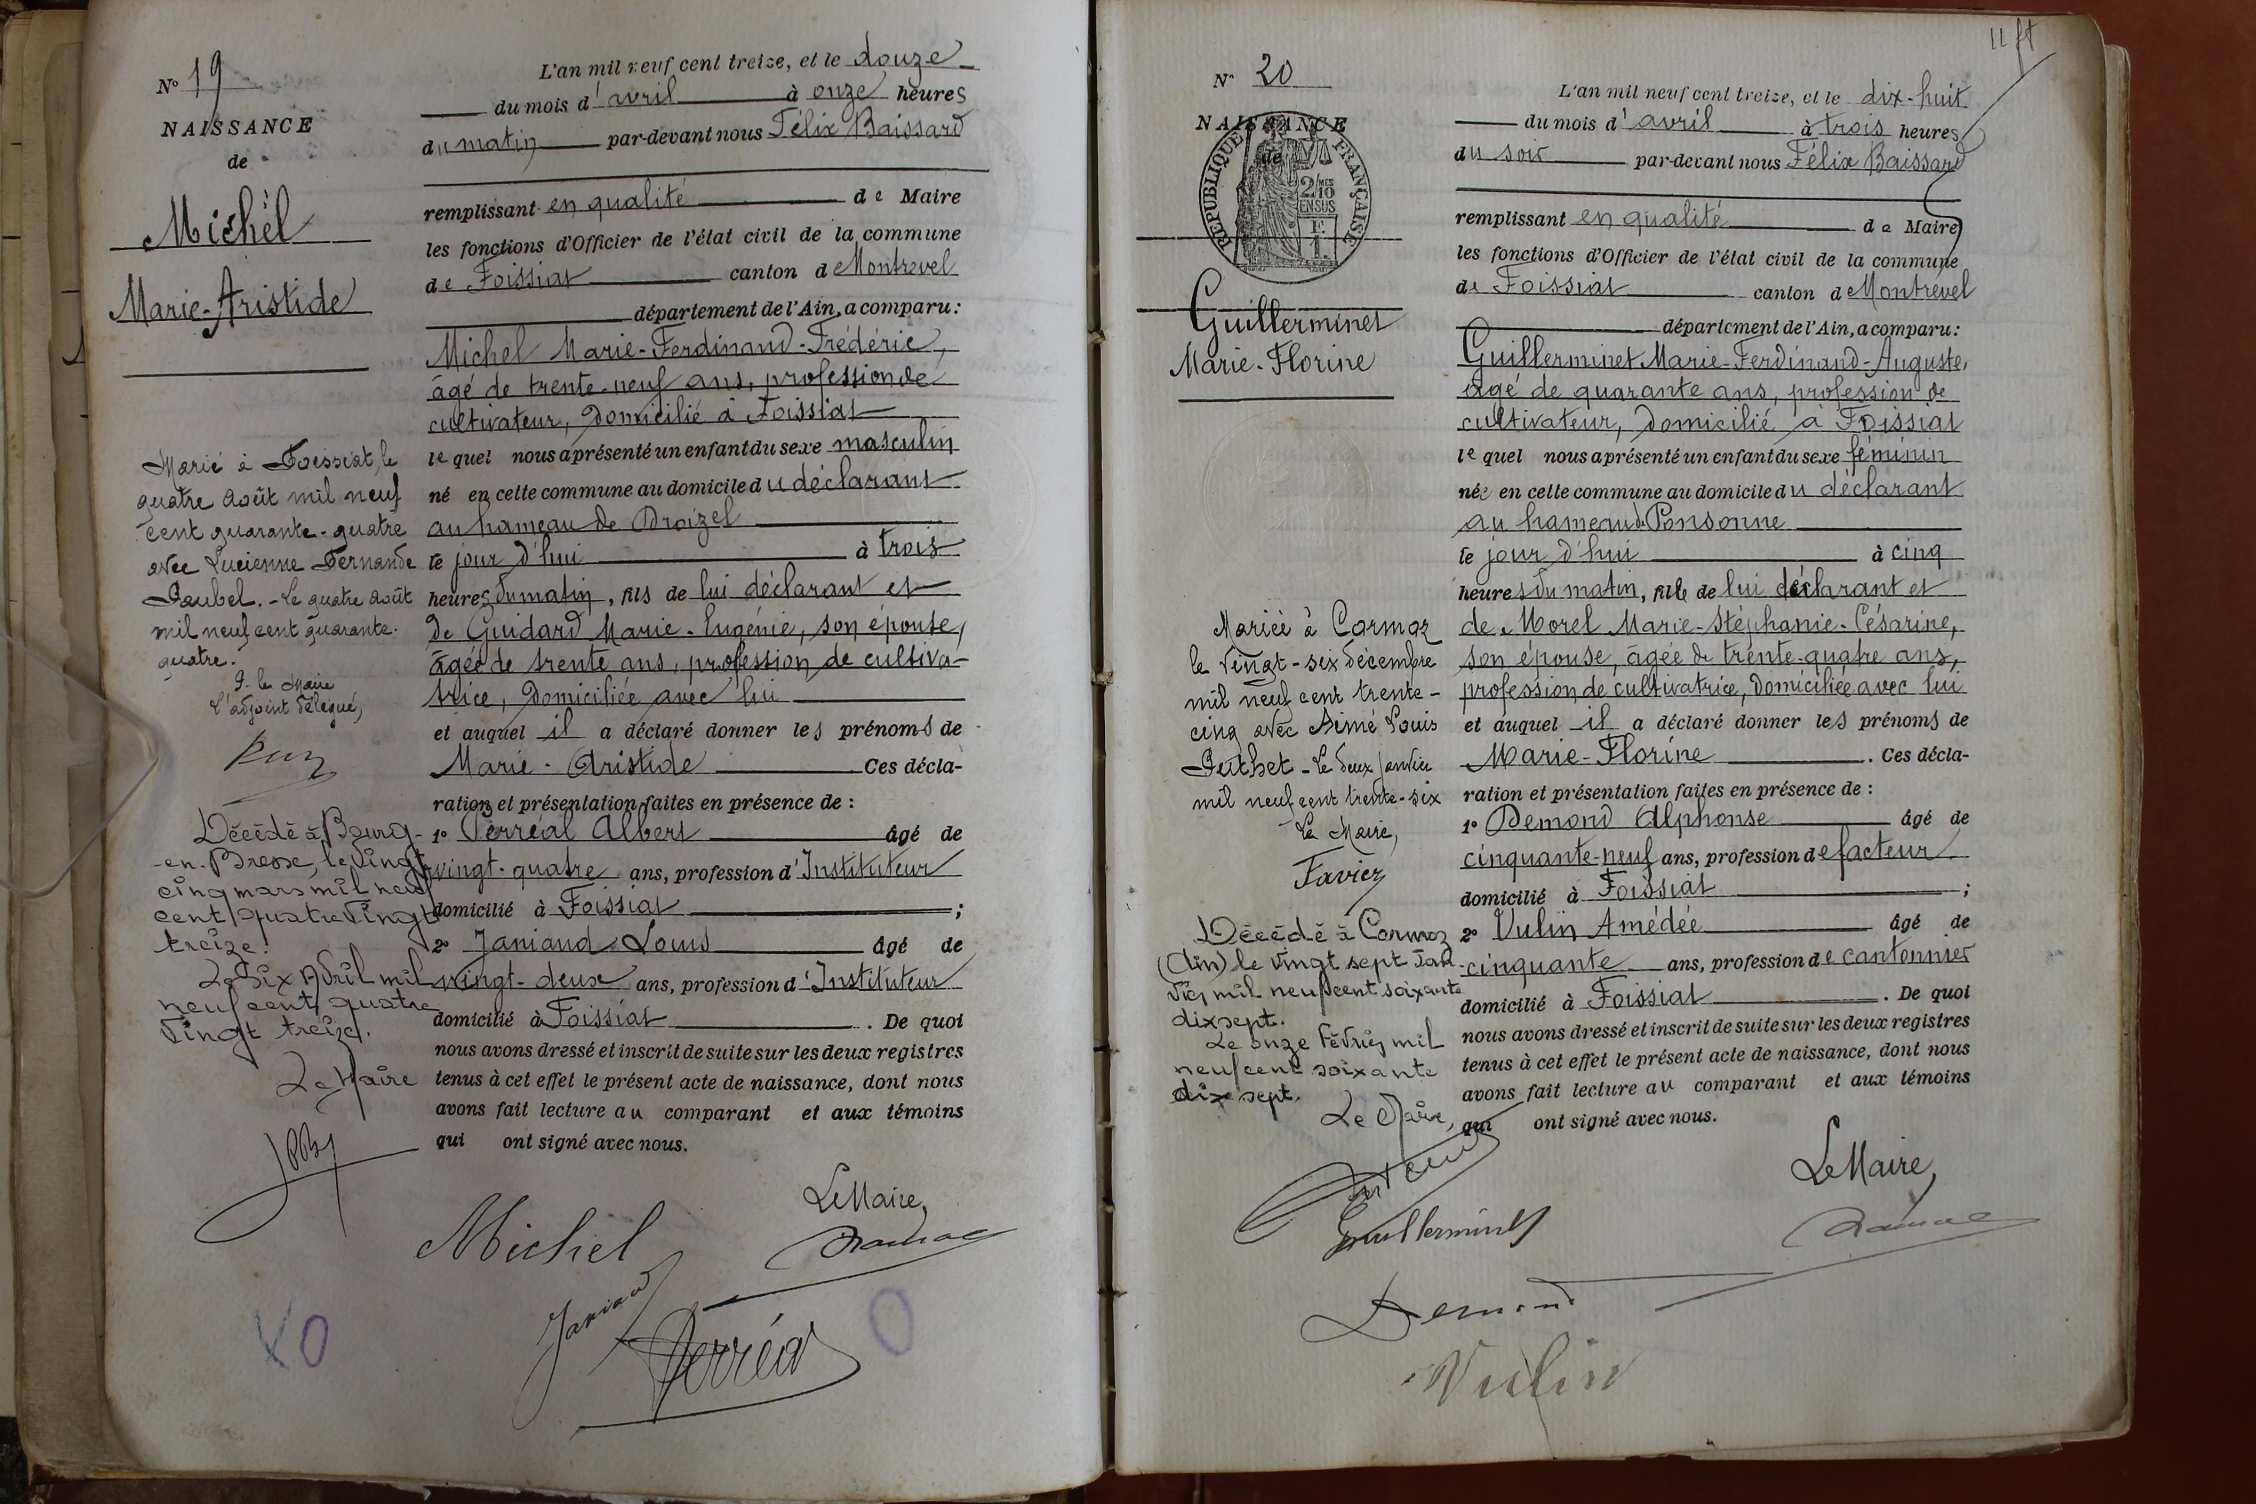 Nº 19
NAISSANCE
de
Michel
Marie-Aristide
L'an mil neuf cent treize, et le douze
du mois d'avril à onze heures
du matin par-devant nous Félix Baissard
remplissant en qualité de Maire
les fonctions d'Officier de l'état civil de la commune
de Foissiat canton de Montrevel
département de l'Ain, a comparu :
Michel Marie-Ferdinand-Frédéric,
âgé de trente-neuf ans, profession de
cultivateur, domicilié à Foissiat
lequel nous a présenté un enfant du sexe masculin
né en cette commune au domicile du déclarant
au hameau de Droizel
le jour d'hui à trois
heures du matin, fils de lui déclarant et
de Guidard Marie-Eugénie, son épouse,
âgée de trente ans, profession de cultiva-
trice, domiciliée avec lui
et auquel il a déclaré donner les prénoms de
Marie-Aristide Ces décla-
ration et présentation faites en présence de :
1º Perréal Albert âgé de
vingt-quatre ans, profession d'Instituteur
domicilié à Foissiat ;
2º Janiaud Louis âgé de
vingt-deux ans, profession d'Instituteur
domicilié à Foissiat . De quoi
nous avons dressé et inscrit de suite sur les deux registres
tenus à cet effet le présent acte de naissance, dont nous
avons fait lecture au comparant et aux témoins
qui ont signé avec nous.
Le Maire,
Michel
Janiaud
Perréal
Marié à Foissiat, le
quatre août mil neuf
cent quarante-quatre
avec Lucienne Fernande
Paubel. - Le quatre août
mil neuf cent quarante-
quatre.
P. le Maire
L'adjoint délégué,
Décédé à Bourg-
en-Bresse, le vingt
cinq mars mil neuf
cent quatre vingt
treize.
Le Six Avril mil
neuf cent quatre
vingt treize.
Le Maire
11 ft
Nº 20
NAISSANCE
de
RÉPUBLIQUE FRANÇAISE
2/10 MES
EN SUS
Guillerminet
Marie-Florine
L'an mil neuf cent treize, et le dix-huit
du mois d'avril à trois heures
du soir par-devant nous Félix Baissard
remplissant en qualité de Maire
les fonctions d'Officier de l'état civil de la commune
de Foissiat canton de Montrevel
département de l'Ain, a comparu :
Guillerminet Marie-Ferdinand-Auguste,
âgé de quarante ans, profession de
cultivateur, domicilié à Foissiat
lequel nous a présenté un enfant du sexe féminin
née en cette commune au domicile du déclarant
au hameau de Ponsonne
le jour d'hui à cinq
heures du matin, fille de lui déclarant et
de Morel Marie-Stéphanie-Césarine,
son épouse, âgée de trente-quatre ans,
profession de cultivatrice, domiciliée avec lui
et auquel il a déclaré donner les prénoms de
Marie-Florine . Ces décla-
ration et présentation faites en présence de :
1º Demond Alphonse âgé de
cinquante-neuf ans, profession de facteur
domicilié à Foissiat ;
2º Vulin Amédée âgé de
cinquante ans, profession de cantonnier
domicilié à Foissiat . De quoi
nous avons dressé et inscrit de suite sur les deux registres
tenus à cet effet le présent acte de naissance, dont nous
avons fait lecture au comparant et aux témoins
qui ont signé avec nous.
Le Maire,
Guillerminet
Demond
Vulin
Mariée à Cormoz
le vingt-six décembre
mil neuf cent trente-
cinq avec Aimé Louis
Puthet - Le deux janvier
mil neuf cent trente-six
Le Maire,
Favier
Décédé à Cormoz
(Ain) le vingt sept Jan
vier mil neuf cent soixante
dix sept.
Le onze Février mil
neuf cent soixante
dix sept.
Le Maire,